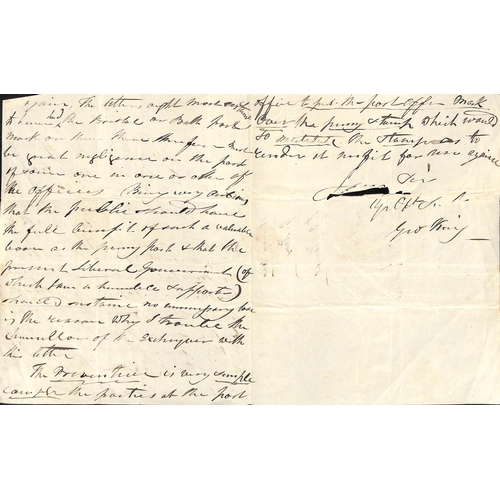 again. The letters ought most certainly
to have had the Rochdale or Bath post
mark on them there therefore must
be great negligence on the part
of some one in one or other of
the offices Being very anxious
that the public should have
the full benefit of such a valuable
boon as the penny post & that the
present Liberal Government (of
which I am a humble supporter)
should sustain no unnecessary loss
is the reason why I trouble the
Chancellor of the exchequer with
this letter
The Preventive is very simple
compel the parties at the post
office to put the post office mark
over the penny stamp which would
so mutilate the stamp as to
render it unfit for use again
Sir
Yr Obt S
Geo King